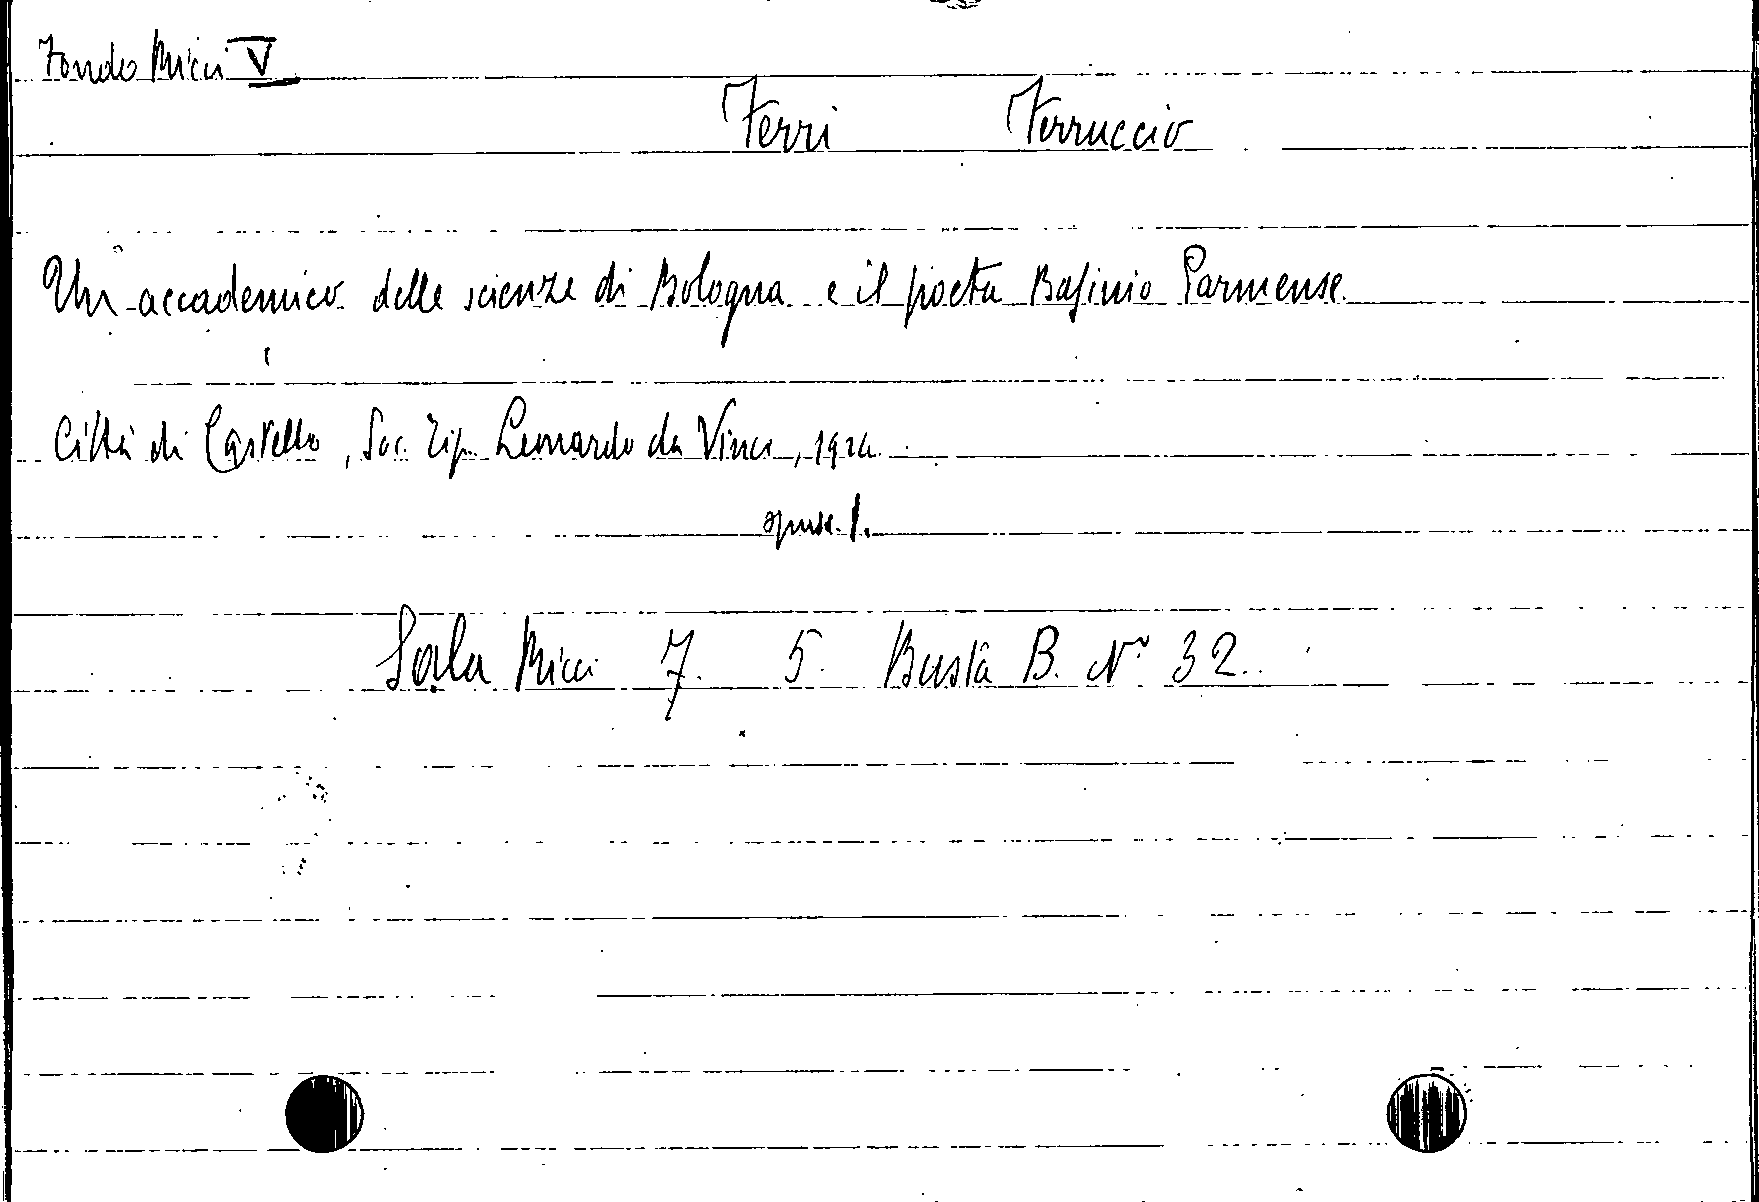 Fondo Ricci V
Ferri Ferruccio
Un accademico delle scienze di Bologna e il poeta Basinio Parmense
Città di Castello, Soc. Tip. Leonardo da Vinci, 1924
opusc. 1.
Sala Ricci 7. 5. Busta B. N° 32.